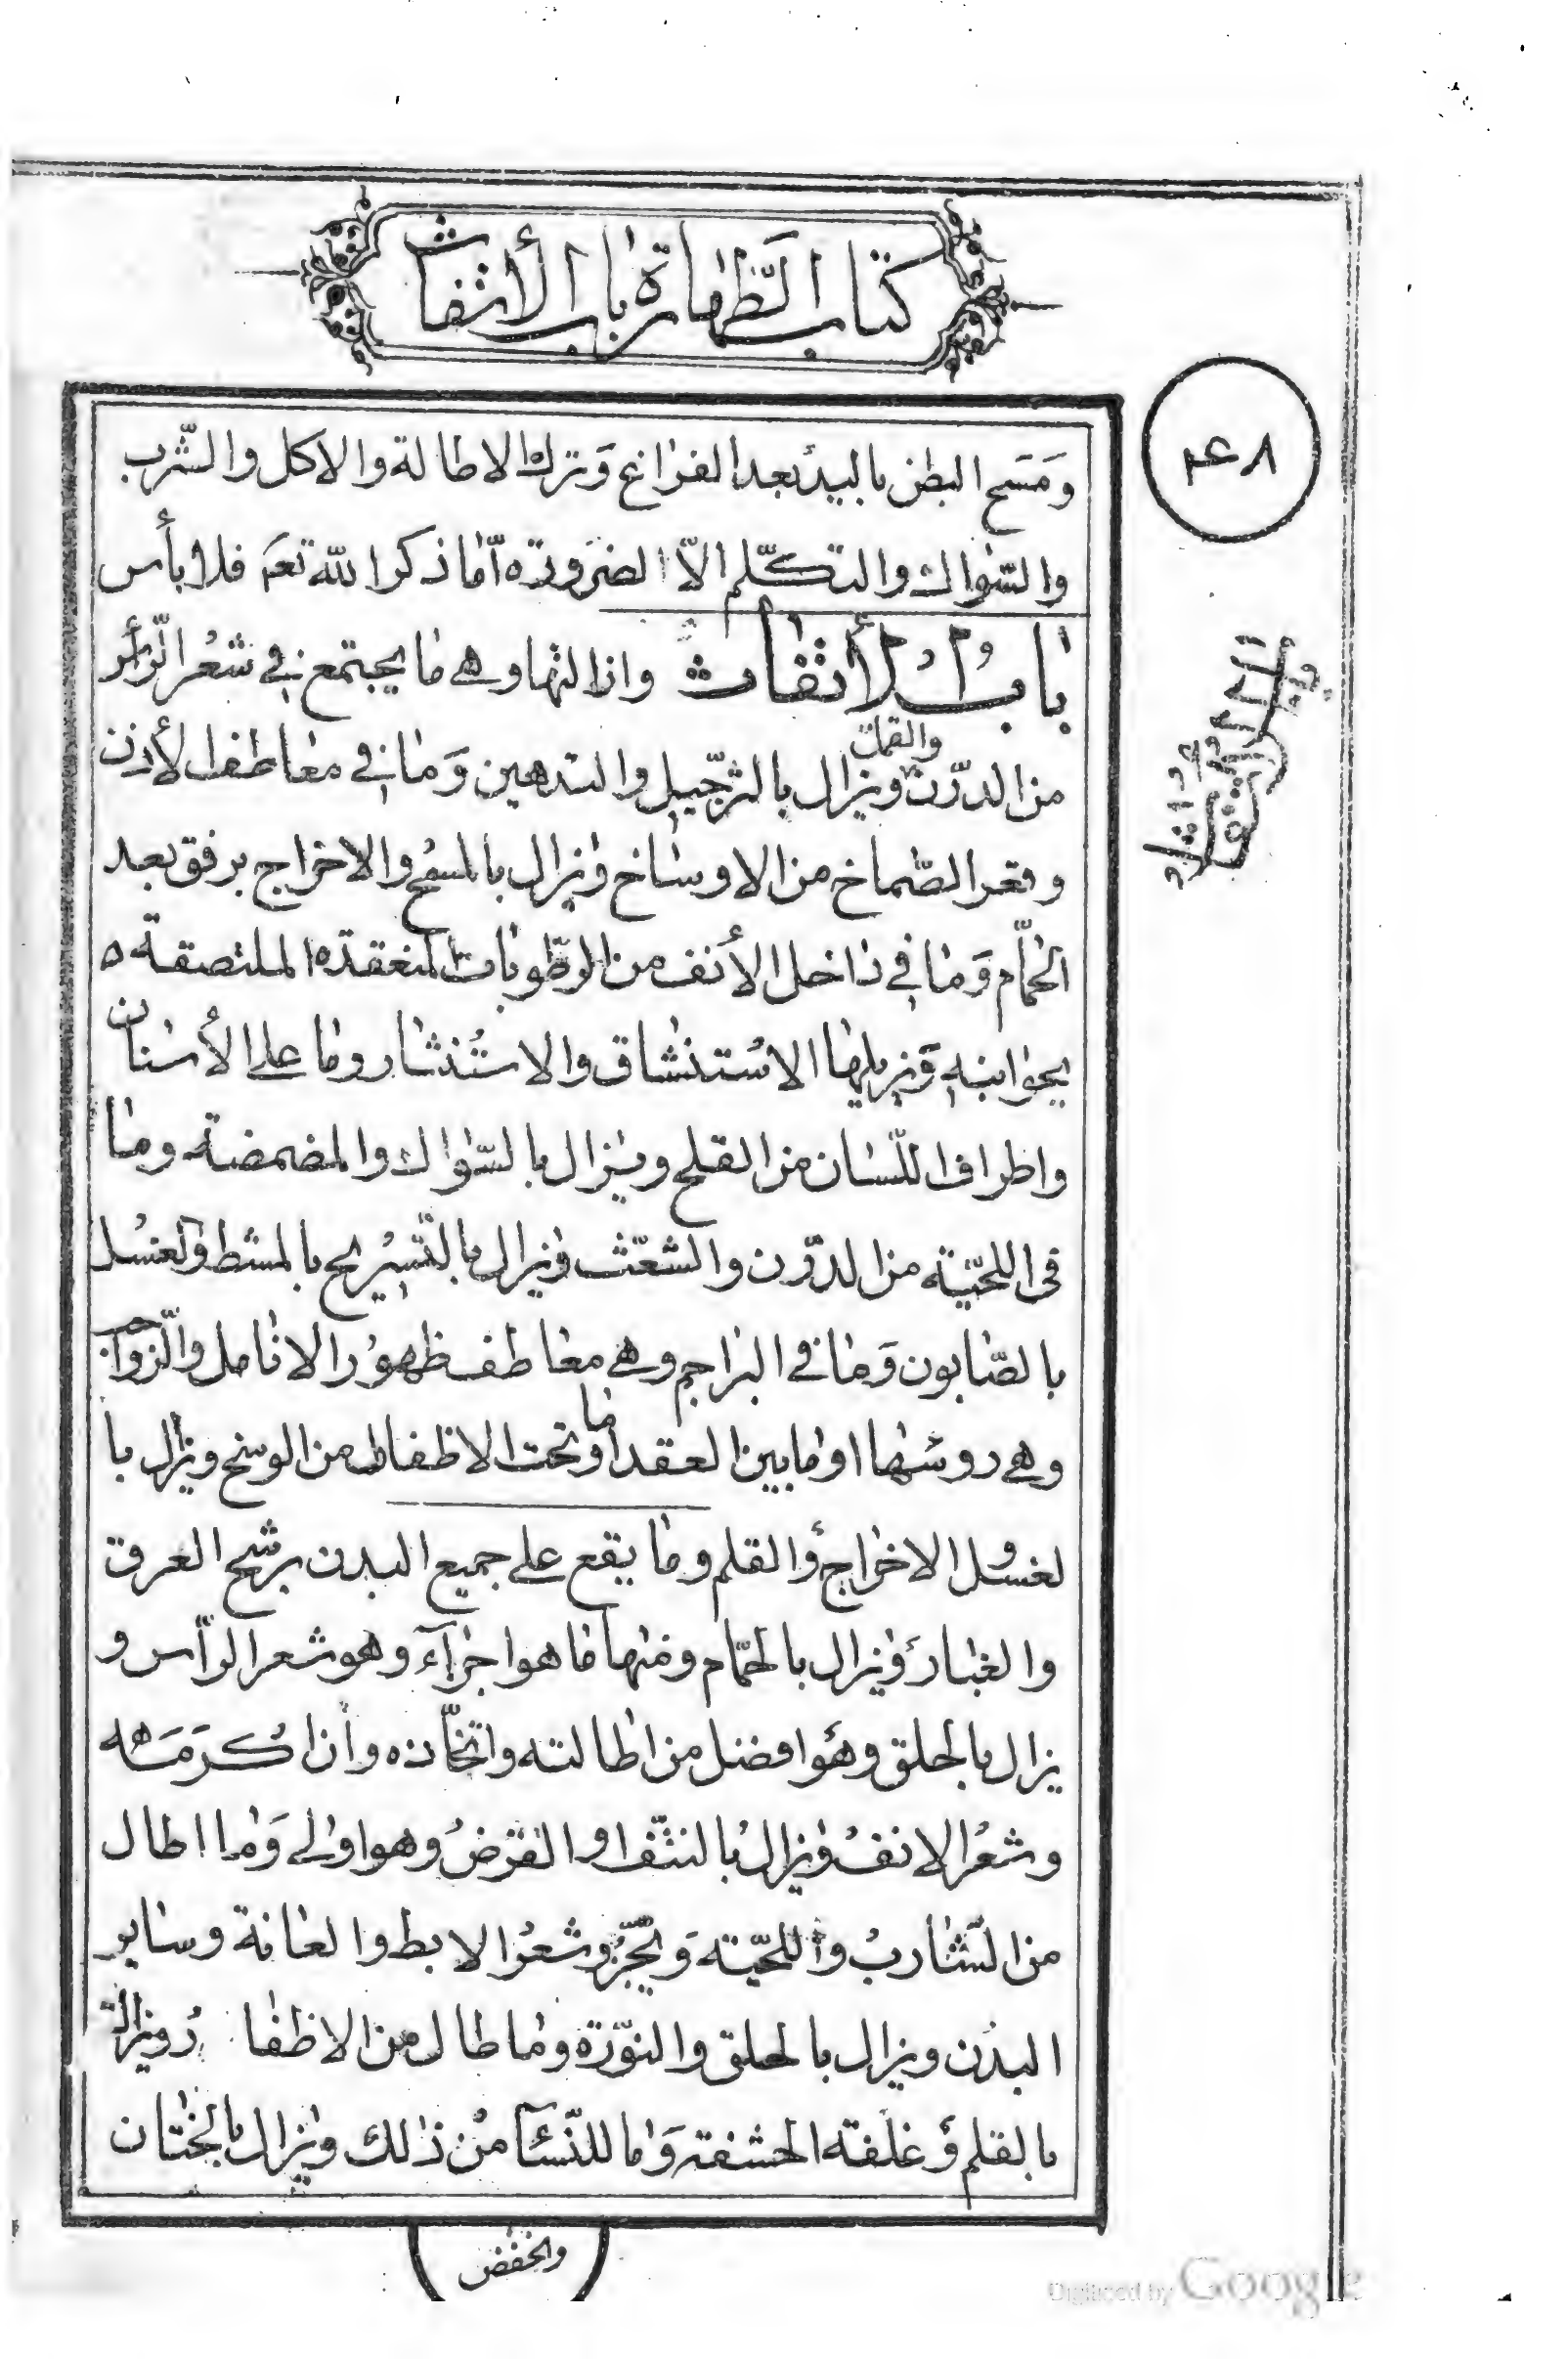 كتاب الطّهارة باب الأتفاث
۴۶۸
وَمَسَح البطن باليد بعد الفراغ وَترك الاطالة والاكل والشّرب
والسّواك والتكلّم الاّ الضرورة امّا ذكر الله تعَم فلا بأس
بابُ الأتفاث وازالتها وهى ما يجتمع فى شعُر الرّأر
والقمل
من الدرّن ويزال بالترجّيل والتدهين وَما فى معاطف الأذن
وقعر الصّماخ من الاوساخ ويزال بالمسُح والاخراج برفق بعد
الحمّام وَما فى داخل الأنف من الرطّوبات المنعقده الملتصقة ه
بجوانبه وَيزيلها الاسُتنشاق والاستُنثار وما على الأسنان
واطراف اللّسان من القلح ويزال بالسّواك والمضمضة وما
فى اللحيّة من الدرّن والشعّث ويزال بالتّسُريح بالمشط والغسُل
بالصّابون وَما فى البراجم وهى معاطف ظهوُر الانامل والرّواجب
وهى روسُها او ما بين العقد او ما تحت الاظفار من الوسخ ويزال با
لغسل والاخراج والقلم وما يقع على جميع البدن برشح العرق
والغبار ويزال بالحمّام ومنها ما هو اجزآء وهو شعر الرّأس و
يزال بالحلق وهُو افضل من اطالته واتخّاذه وان اكرمَه
وشعُر الانف ويزال بالنتّف او القرض وهو اولى وَما اطال
من الشّارب واللحيّته وَيجّز وشعُر الابط والعانة وساير
البدن ويزال بالحلق والنوّرة وما طال من الاظفا رُ ويزال
بالقلم وَغلفة الحشفه وَما للنّسآ منُ ذلك ويزال بالختان
والخفض
Digitized by Google